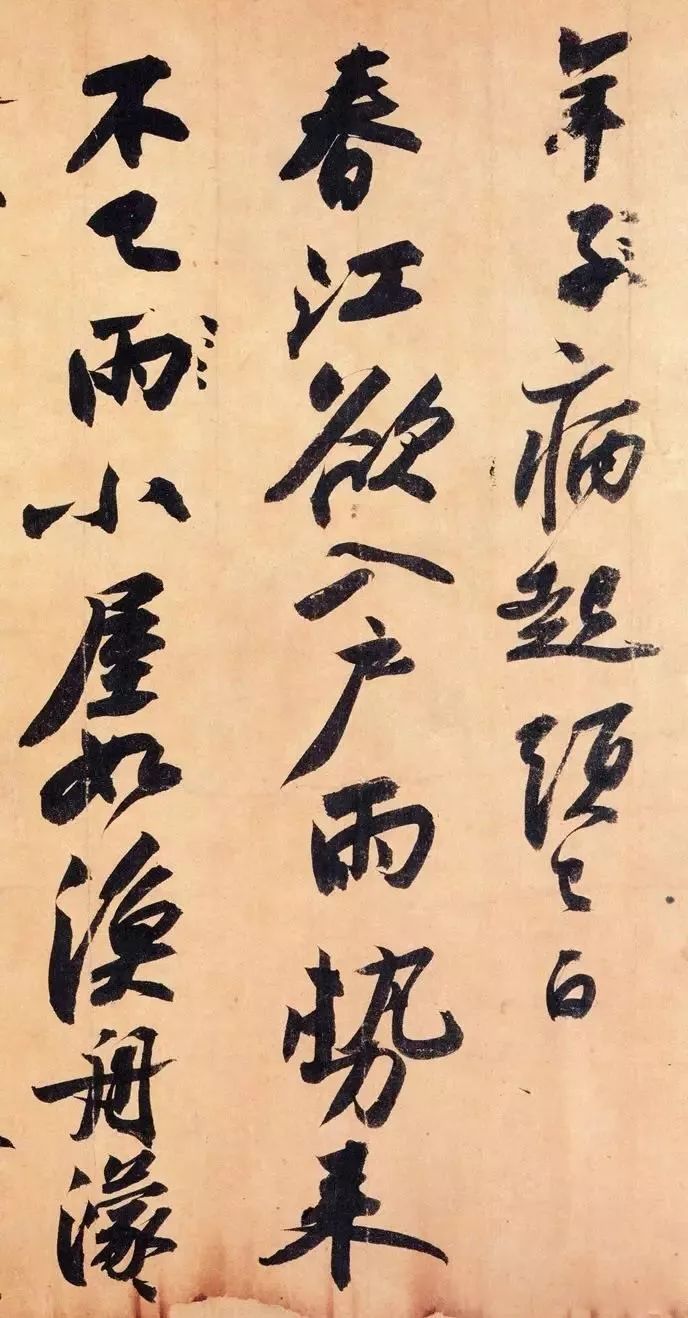 年子病起頭已白
春江欲入戶雨勢来
不已雨小屋如漁舟濛〻